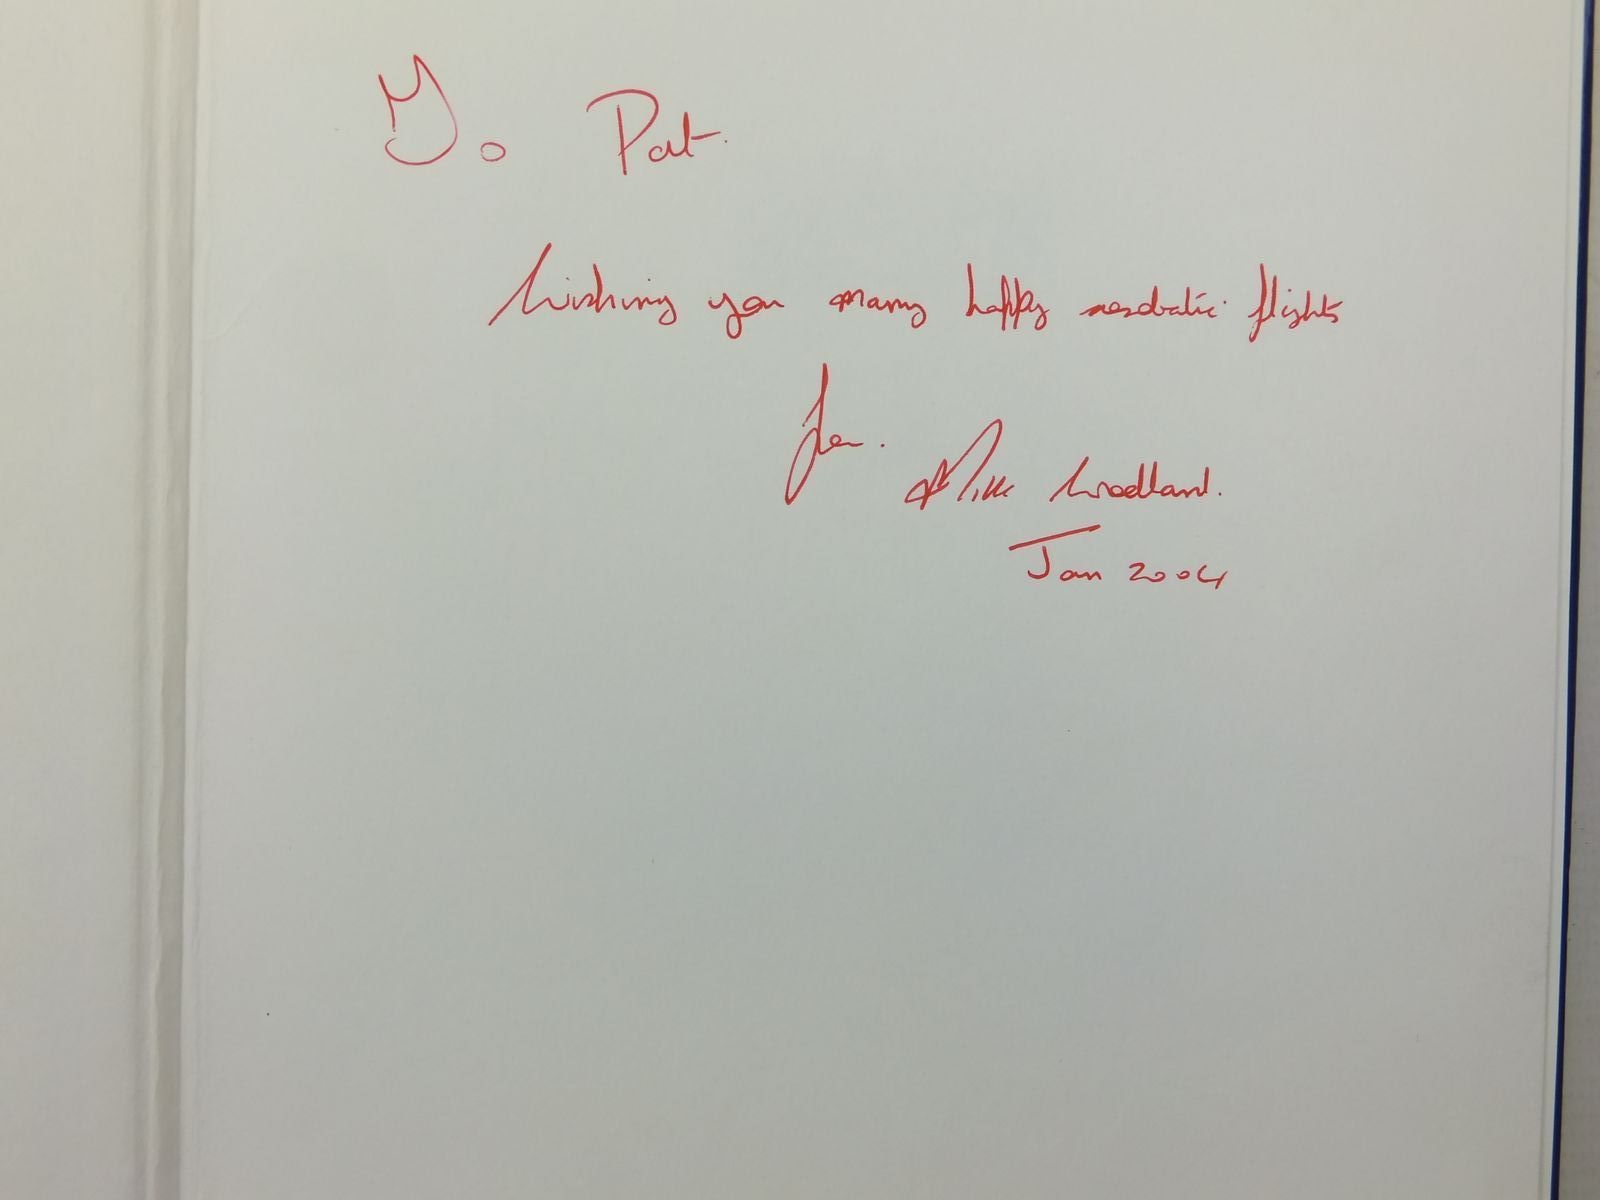 To Pat.
Wishing you many happy aerobatic flights
from.
Woodland.
Jan 2004